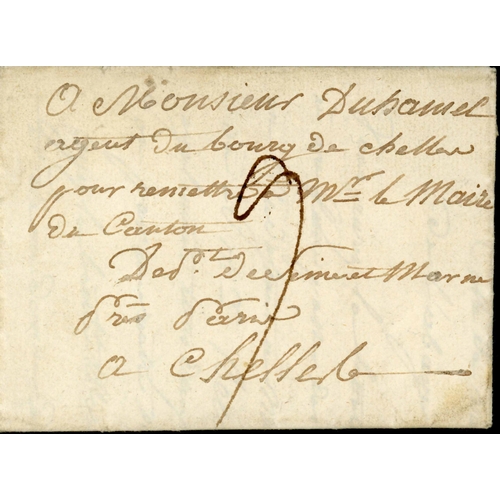 A Monsieur Duhamel
agent du bourg de chelles
pour remettre a Mr. le Maire
du Canton
Dept. de Seine et Marne
près Paris
a Chelles